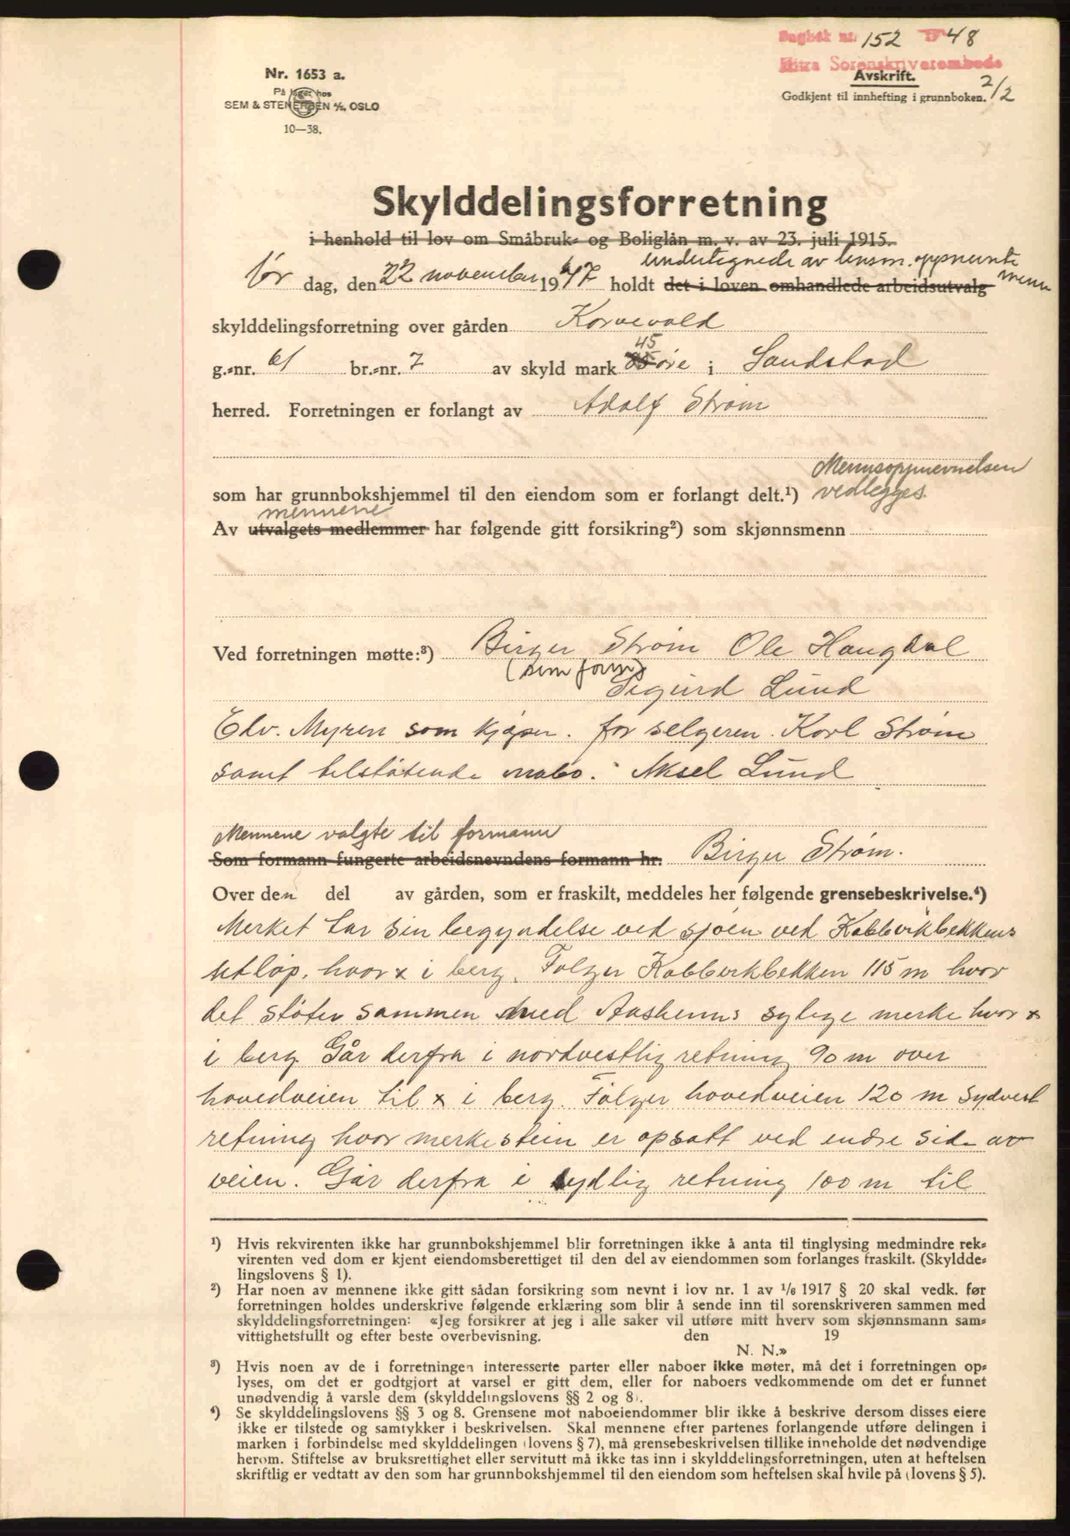 Dagbok nr. 152 19 48
Hitra Sorenskriverembede
Nr. 1653 a.
Avskrift. 2/2
På lager hos
SEM & STENERSEN A/S, OSLO
Godkjent til innhefting i grunnboken.
10—38.
Skylddelingsforretning
i henhold til lov om Småbruk- og Boliglån m. v. av 23. juli 1915.
undertegnede av lensm. oppnevnte menn
lør dag, den 22 november 1947 holdt det i loven omhandlede arbeidsutvalg
skylddelingsforretning over gården Korsvold
g.-nr. 61 br.-nr. 7 av skyld mark 45 øre i Sandstad
herred. Forretningen er forlangt av Adolf Strøm
Mennsoppnevnelsen
som har grunnbokshjemmel til den eiendom som er forlangt delt.¹) vedlegges.
mennene
Av utvalgets medlemmer har følgende gitt forsikring²) som skjønnsmenn
Ved forretningen møtte:³) Birger Strøm Ole Haugdal
(som form) Sigurd Lund
Edv. Myren som kjøper. for selgeren. Karl Strøm
samt tilstøtende nabo. Aksel Lund
Mennene valgte til formann
Som formann fungerte arbeidsnevndens formann hr. Birger Strøm.
Over den del av gården, som er fraskilt, meddeles her følgende grensebeskrivelse.⁴)
Merket tar sin begyndelse ved sjøen ved Kobbvikbekkens
utløp, hvor x i berg. Følger Kobbvikbekken 115 m hvor
det støter sammen med Aasheims sylige merke hvor x
i berg. Går derfra i nordvestlig retning 90 m over
hovedveien til x i berg. Følger hovedveien 120 m sydvest
retning hvor merkestein er opsatt ved endre side av
veien. Går derfra i sydlig retning 100 m til
¹) Hvis rekvirenten ikke har grunnbokshjemmel blir forretningen ikke å anta til tinglysing medmindre rek-
virenten ved dom er kjent eiendomsberettiget til den del av eiendommen som forlanges fraskilt. (Skyldde-
lingslovens § 1).
²) Har noen av mennene ikke gitt sådan forsikring som nevnt i lov nr. 1 av 1/6 1917 § 20 skal vedk. før
forretningen holdes underskrive følgende erklæring som blir å sende inn til sorenskriveren sammen med
skylddelingsforretningen: «Jeg forsikrer at jeg i alle saker vil utføre mitt hverv som skjønnsmann sam-
vittighetsfullt og efter beste overbevisning. den 19
N. N.»
³) Hvis noen av de i forretningen interesserte parter eller naboer ikke møter, må det i forretningen op-
lyses, om det er godtgjort at varsel er gitt dem, eller for naboers vedkommende om det er funnet
unødvendig å varsle dem (skylddelingslovens §§ 2 og 8).
⁴) Se skylddelingslovens §§ 3 og 8. Grensene mot naboeiendommer blir ikke å beskrive dersom disses eiere
ikke er tilstede og samtykker i beskrivelsen. Skal mennene efter partenes forlangende utføre delingen i
marken i forbindelse med skylddelingen (lovens § 7), må grensebeskrivelsen tillike inneholde det nødvendige
herom. Stiftelse av bruksrettighet eller servitutt må ikke tas inn i skylddelingsforretningen, uten at heftelsen
skriftlig er vedtatt av den som har grunnbokshjemmel til den eiendom som heftelsen skal hvile på (lovens § 5).